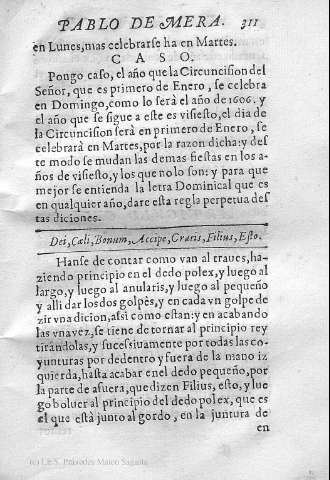 PABLO DE MERA. 311
en Lunes, mas celebrarse ha en Martes.
CASO.
Pongo caso, el año que la Circuncision del
Señor, que es primero de Enero, se celebra
en Domingo, como lo serà el año de 1606. y
el año que se sigue a este es visiesto, el dia de
la Circuncision serà en primero de Enero, se
celebrarà en Martes, por la razon dicha: y des
te modo se mudan las demas fiestas en los a-
ños de visiesto, y los que no lo son: y para que
mejor se entienda la letra Dominical que es
en qualquier año, dare esta regla perpetua des
tas diciones.
Dei, Cæli, Bonum, Accipe, Gratis, Filius, Esto.
Hanse de contar como van al traues, ha-
ziendo principio en el dedo polex, y luego al
largo, y luego al anularis, y luego al pequeño
y alli dar los dos golpes, y en cada vn golpe de
zir vna dicion, assi como estan: y en acabando
las vna vez, se tiene de tornar al principio rey
tirandolas, y sucessiuamente por todas las co-
yunturas por de dentro y fuera de la mano iz
quierda, hasta acabar en el dedo pequeño, por
la parte de afuera, que dizen Filius, esto, y lue
go boluer al principio del dedo polex, que es
el que està junto al gordo, en la juntura de
en
(c) I.E.S. Práxedes Mateo Sagasta